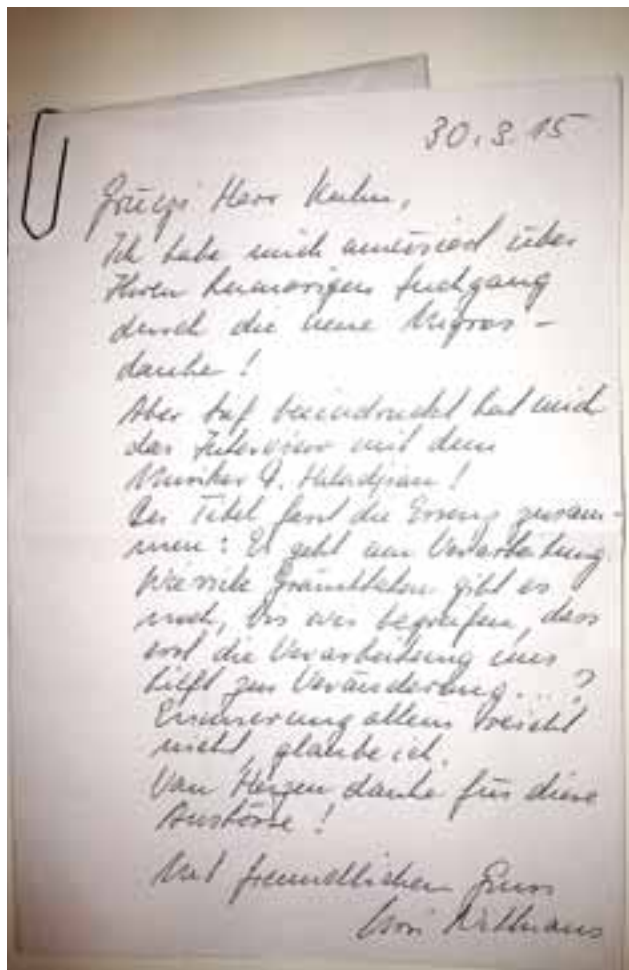 30.3.15
Grüezi Herr Kuhn,
Ich habe mich amüsiert über
Ihren humorigen
durch die neue Migros-
danke!
Aber tief beeindruckt hat mich
das Interview mit dem
Musiker
Der Titel fasst die Essenz zusam-
men: Es geht um Verarbeitung.
Wieviele Gräueltaten gibt es
noch, bis wir begreifen, dass
erst die Verarbeitung uns
hilft zur Veränderung...?
Erinnerung allein reicht
nicht, glaube ich.
Von Herzen danke für diese
Anstösse!
Mit freundlichem Gruss